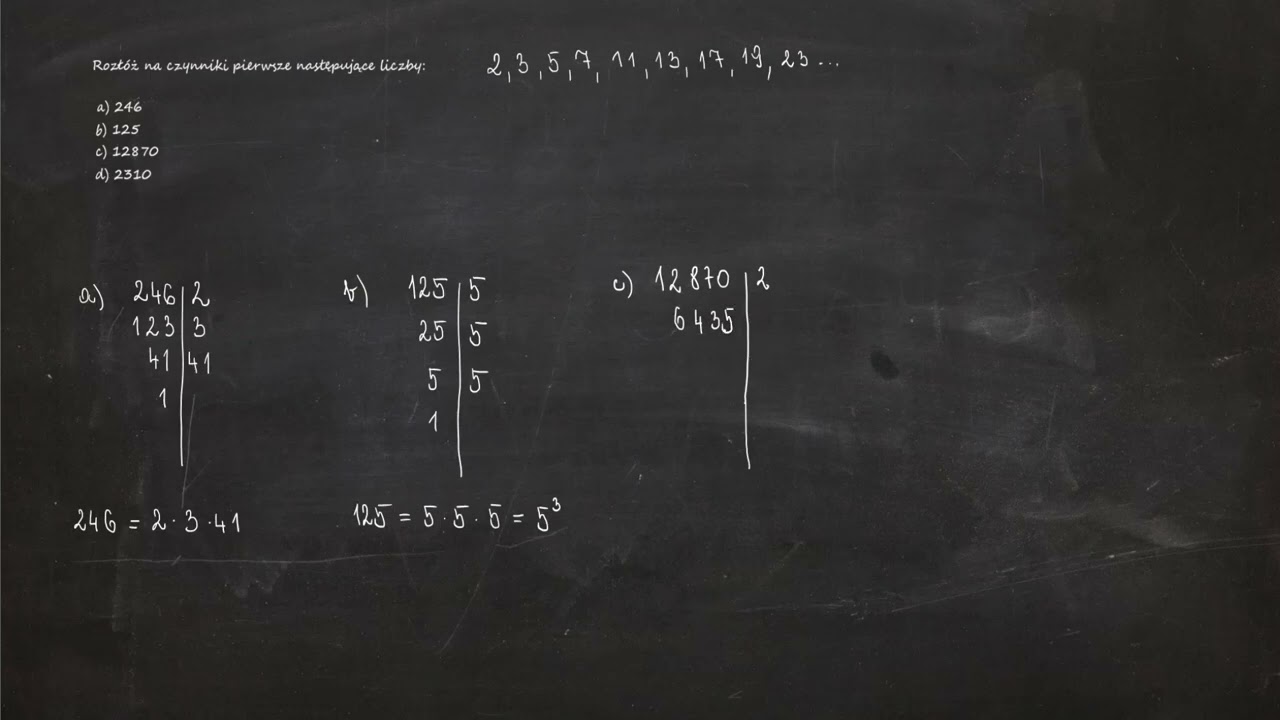 Rozłóż na czynniki pierwsze następujące liczby:
2, 3, 5, 7, 11, 13, 17, 19, 23 ...
a) 246
b) 125
c) 12870
d) 2310
a) 246 | 2
123 | 3
41 | 41
1
b) 125 | 5
25 | 5
5 | 5
1
c) 12870 | 2
6435
246 = 2 · 3 · 41
125 = 5 · 5 · 5 = 5³